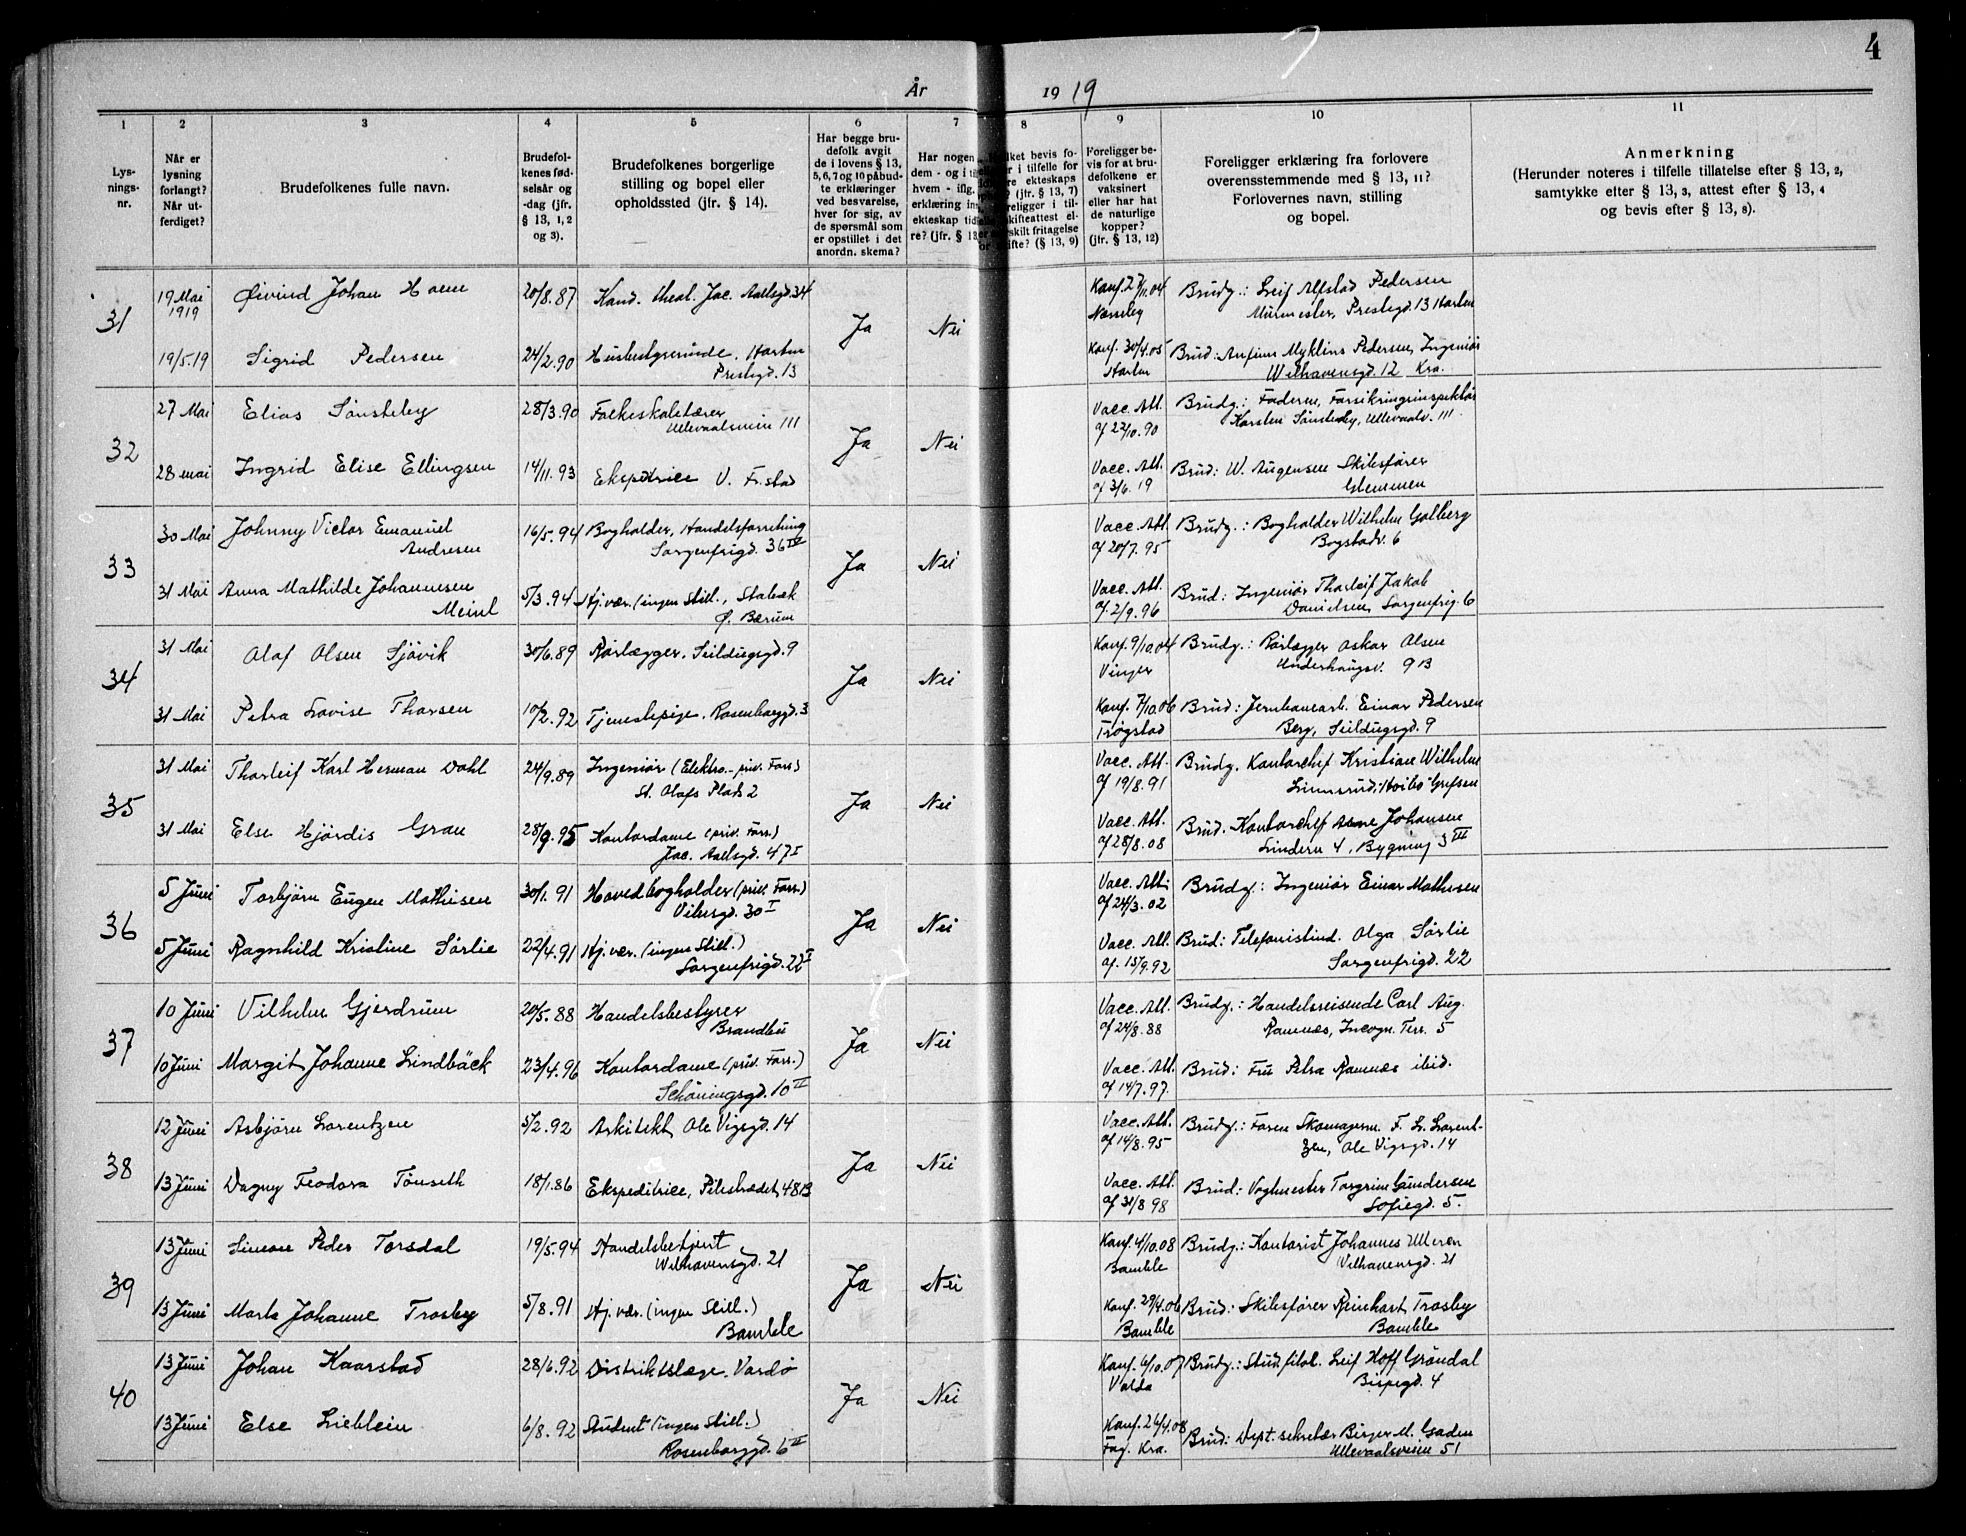 4
År 1919
1
Lys-
nings-
nr.
2
Når er
lysning
forlangt?
Når ut-
ferdiget?
3
Brudefolkenes fulle navn.
4
Brudefol-
kenes fød-
selsår og
-dag (jfr.
§ 13, 1, 2
og 3).
5
Brudefolkenes borgerlige
stilling og bopel eller
opholdssted (jfr. § 14).
6
Har begge bru-
defolk avgit
de i lovens § 13,
5, 6, 7 og 10 påbud-
te erklæringer
ved besvarelse,
hver for sig, av
de spørsmål som
er opstillet i det
anordn. skema?
7
Har nogen
dem - og i
hvem - iflg.
erklæring in
ekteskap tid
re? (jfr. § 13
8
ket bevis fo-
i tilfelle for
re ekteskaps
? (jfr. § 13, 7)
religger i til-
kifteattest el-
skilt fritagelse
ifte? (§ 13, 9)
9
Foreligger be-
vis for at bru-
defolkene er
vaksinert
eller har hat
de naturlige
kopper?
(jfr. § 13, 12)
10
Foreligger erklæring fra forlovere
overensstemmende med § 13, 11?
Forlovernes navn, stilling
og bopel.
11
Anmerkning
(Herunder noteres i tilfelle tillatelse efter § 13, 2,
samtykke efter § 13, 3, attest efter § 13, 4
og bevis efter § 13, 8).
31
19 Mai 1919 Øivind Johan 20/8.87 Kand. theol. Jac. Aallsgd. 34 Ja Nei
Brudg.: Leif Alfstad Pedersen
Murmester, Prestegd. 13 Horten
19/5.19 Sigrid Pedersen 24/2.90 Husbestyrerinde, Horten
Prestegd. 13
Konf. 30/4.05 Horten
Brud: Myklins Pedersen, Ingeniør
Welhavensgd. 12 Kra.
32
27 Mai Elias Sønsteby 28/3.90 Folkeskolelærer
Ullevaalsveien 111 Ja Nei
Vacc. Att. af 22/10.90
Brudg.: Faderen, Forsikringsinspektør
Karsten Sønsteby, Ullevaalsv. 111
28 mai Ingrid Elise Ellingsen 14/11.93 Ekspeditrice V. Fr.stad
Vacc. Att. af 3/6.19
Brud: W. Augensen Skibsfører
Glemmen
33
30 Mai Johnny Victor Emanuel
Andresen 16/5.94 Bogholder, Handelsforretning
Sorgenfrigd. 36 IV Ja Nei
Vacc. Att. af 20/7.95
Brudg.: Bogholder Wilhelm Golberg
Bogstadv. 6
31 Mai Anna Mathilde Johannesen
Meinl 5/3.94 Hj.vær. (ingen Still., Stabæk
Ø. Bærum
Vacc. Att. af 2/9.96
Brud: Ingeniør Thorleif Jakob
Danielsen, Sorgenfrig. 6
34
31 Mai Olaf Olsen Sjøvik 30/6.89 Rørlægger, Seildugsgd. 9 Ja Nei
Konf. 9/10.04 Vinger
Brudg.: Rørlægger Oskar Olsen
Underhaugsv. 9B
31 Mai Petra Lovise Thorsen 10/2.92 Tjenestepige, Rosenborggd. 3
Konf. 7/10.06 Trøgstad
Brud: Jernbanearb. Einar Pedersen
Berg, Seildugsgd. 9
35
31 Mai Thorleif Karl Herman Dahl 24/9.89 Ingeniør (Elektro.- priv. Forr.)
St. Olafs Plads 2 Ja Nei
Vacc. Att. af 19/8.91
Brudg. Kontorchef Kristian Wilhelm
Linnerud, Grefsen
31 Mai Else Hjørdis Grau 28/9.95 Kontordame (priv. Forr.)
Jac. Aallsgd. 47 I
Vacc. Att. af 28/8.08
Brud. Kontorchef Arne Johansen
Lindern 4, Bygning 3 III
36
5 Juni Torbjørn Eugen Mathisen 30/1.91 Hovedbogholder (priv. Forr.)
Vibesgd. 30 I Ja Nei
Vacc. Att. af 24/3.02
Brudg.: Ingeniør Einar Mathisen
5 Juni Ragnhild Kristine Sørlie 22/4.91 Hj.vær. (ingen Still.)
Sorgenfrigd. 22 I
Vacc. Att. af. 15/9.92
Brud: Telefonistind. Olga Sørlie
Sorgenfrigd. 22
37
10 Juni Vilhelm Gjerdrum 20/5.88 Handelsbestyrer
Brandbu Ja Nei
Vacc. Att. af 24/8.88
Brudg.: Handelsreisende Carl Aug.
Ramnæs, Incogn. Terr. 5
10 Juni Margit Johanne Lindbäck 23/4.96 Kontordame (priv. Forr.)
Schøningsgd. 10 II
Vacc. Att. af 14/7.97.
Brud: Fru Petra Ramnæs ibid.
38
12 Juni Asbjørn Lorentzen 5/2.92 Arkitekt, Ole Vigsgd. 14 Ja Nei
Vacc. Att. af 14/8.95
Brudg.: Faren Skomagerm. F. L. Lorent-
zen, Ole Vigsgd. 14
13 Juni Dagny Feodora Tönseth 18/1.86 Ekspeditrice, Pilestrædet 48B
Vacc. Att. af 31/8 98
Brud: Vognmester Torgrim Gundersen
Sofiegd. 5.
39
13 Juni Simon Peder Torsdal 19/5.94 Handelsbetjent
Welhavensgd. 21 Ja Nei
Konf. 4/10.08 Bamble
Brudg.: Kontorist Johannes Ulleren
Velhavensgd. 21
13 Juni Marta Johanne Trosby 5/8.91 Hj.vær. (ingen Still.)
Bamble
Konf. 29/4.06 Bamble
Brud: Skibsfører Reinhart Trosby
Bamble
40
13 Juni Johan Kaarstad 28/6.92 Distriktslæge, Vardø Ja Nei
Konf. 6/10.07 Volda
Brudg.: Stud. filol. Leif Hoff Grøndal
Bispegd. 4
13 Juni Else Lieblein 6/8.92 Student (ingen Still.)
Rosenborggd. 6 II
Konf. 26/4.08 Fag. Kra.
Brud: Dept. sekretær Birger M. Gaden
Ullevaalsveien 51